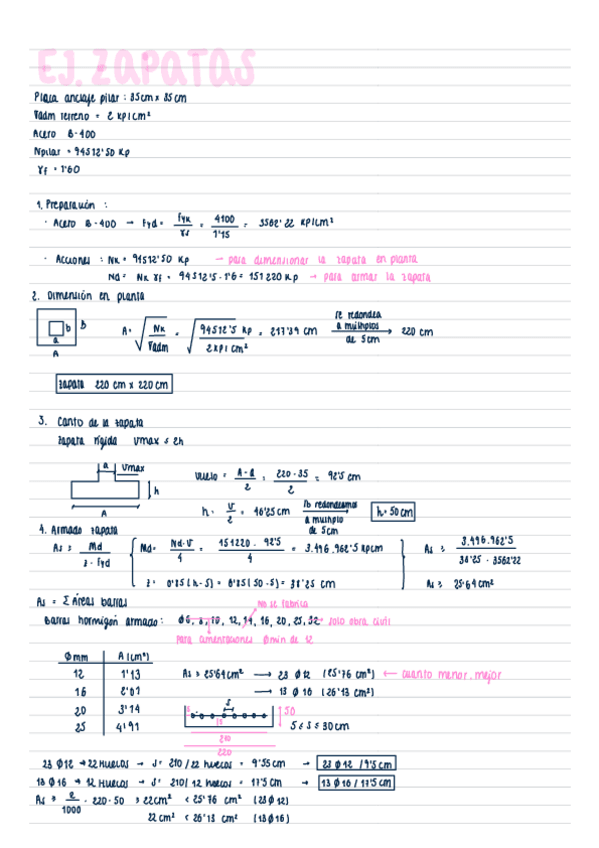 EJ. ZAPATAS
Placa anclaje pilar : 35cm x 35cm
Γadm terreno = 2 Kp/cm²
Acero B-400
Npilar = 94512'50 Kp
γf = 1'60
1. Preparación :
· Acero B-400 → Fyd = Fyk / γs = 4100 / 1'15 = 3562'22 Kp/cm²
· Acciones : Nk = 94512'50 Kp → para dimensionar la zapata en planta
Nd = Nk γf = 94512'5 · 1'6 = 151220 Kp → para armar la zapata
2. Dimensión en planta
b B
a
A
A = √ Nk / Γadm = √ 94512'5 Kp / 2 Kp/cm² = 217'39 cm se redondea a múltiplos de 5cm → 220 cm
Zapata 220 cm x 220 cm
3. Canto de la zapata
Zapata rígida Vmax ≤ 2h
a Vmax
h
A
Vuelo = A - a / 2 = 220 - 35 / 2 = 92'5 cm
h = V / 2 = 46'25 cm lo redondeamos a múltiplo de 5cm → h = 50 cm
4. Armado zapata
As ≥ Md / z · Fyd
Md = Nd · V / 4 = 151220 · 92'5 / 4 = 3.496.962'5 Kpcm
z = 0'85 (h - 5) = 0'85 (50 - 5) = 38'25 cm
As ≥ 3.496.962'5 / 38'25 · 3562'22
As ≥ 25'64 cm²
As = Σ Áreas barras
No se fabrica
Barras hormigón armado : Ø6, 8, 10, 12, 14, 16, 20, 25, 32 → solo obra civil
para cimentaciones Ø min de 12
Ø mm A (cm²)
12 1'13
16 2'01
20 3'14
25 4'91
As ≥ 25'64 cm² → 23 Ø 12 (25'76 cm²) ← cuanto menor, mejor
→ 13 Ø 16 (26'13 cm²)
5 S 50
210
220
5 ≤ S ≤ 30 cm
23 Ø 12 → 22 Huecos → S = 210 / 22 huecos = 9'55 cm → 23 Ø 12 / 9'5 cm
13 Ø 16 → 12 Huecos → S = 210 / 12 huecos = 17'5 cm → 13 Ø 16 / 17'5 cm
As ≥ 2 / 1000 · 220 · 50 ≥ 22 cm² < 25'76 cm² (23 Ø 12)
22 cm² < 26'13 cm² (13 Ø 16)